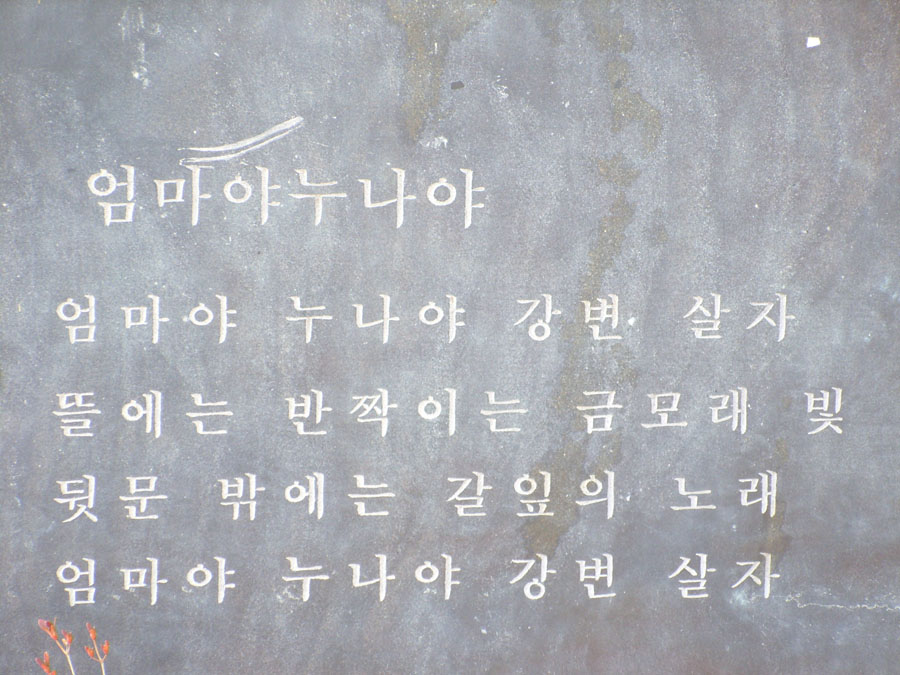 엄마야누나야
엄마야 누나야 강변 살자
뜰에는 반짝이는 금모래 빛
뒷문 밖에는 갈잎의 노래
엄마야 누나야 강변 살자